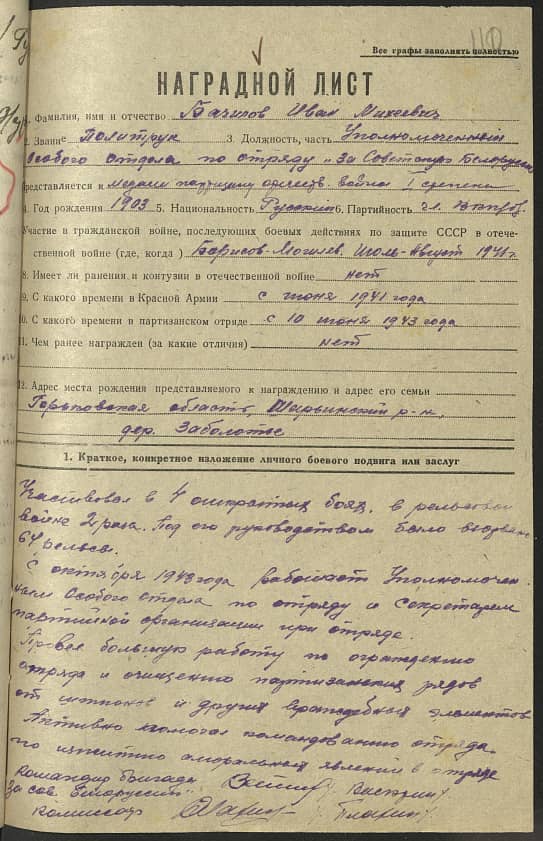 Все графы заполнять полностью
НАГРАДНОЙ ЛИСТ
1. Фамилия, имя и отчество Бачилов Иван Михеевич
2. Звание Политрук 3. Должность, часть Уполномоченный
Особого отдела по отряду "За Советскую Белоруссию
представляется к медали партизану отечеств. войны I степени
4. Год рождения 1903 5. Национальность Русский 6. Партийность чл.
Участие в гражданской войне, последующих боевых действиях по защите СССР в отече-
ственной войне (где, когда) Борисов-Могилев. Июль-Август 1941 г.
8. Имеет ли ранения и контузии в отечественной войне нет
9. С какого времени в Красной Армии с июня 1941 года
10. С какого времени в партизанском отряде с 10 июня 1943 года
11. Чем ранее награжден (за какие отличия) нет
12. Адрес места рождения представляемого к награждению и адрес его семьи
Горьковская область, Шарьинский р-н,
дер. Заболотье
1. Краткое, конкретное изложение личного боевого подвига или заслуг
Участвовал в 4 открытых боях, в рельсовой
войне 2 раза. Под его руководством было взорвано
64 рельса.
С октября 1943 года работает Уполномочен.
ным Особого отдела по отряду и секретарем
партийной организации при отряде.
Провел большую работу по ограждению
отряда и очищению партизанских рядов
от шпионов и других враждебных элементов
Активно помогал командованию отряда
по изжитию аморальных явлений в отряде
Командир бригады
За сов. Белоруссию"
Комиссар